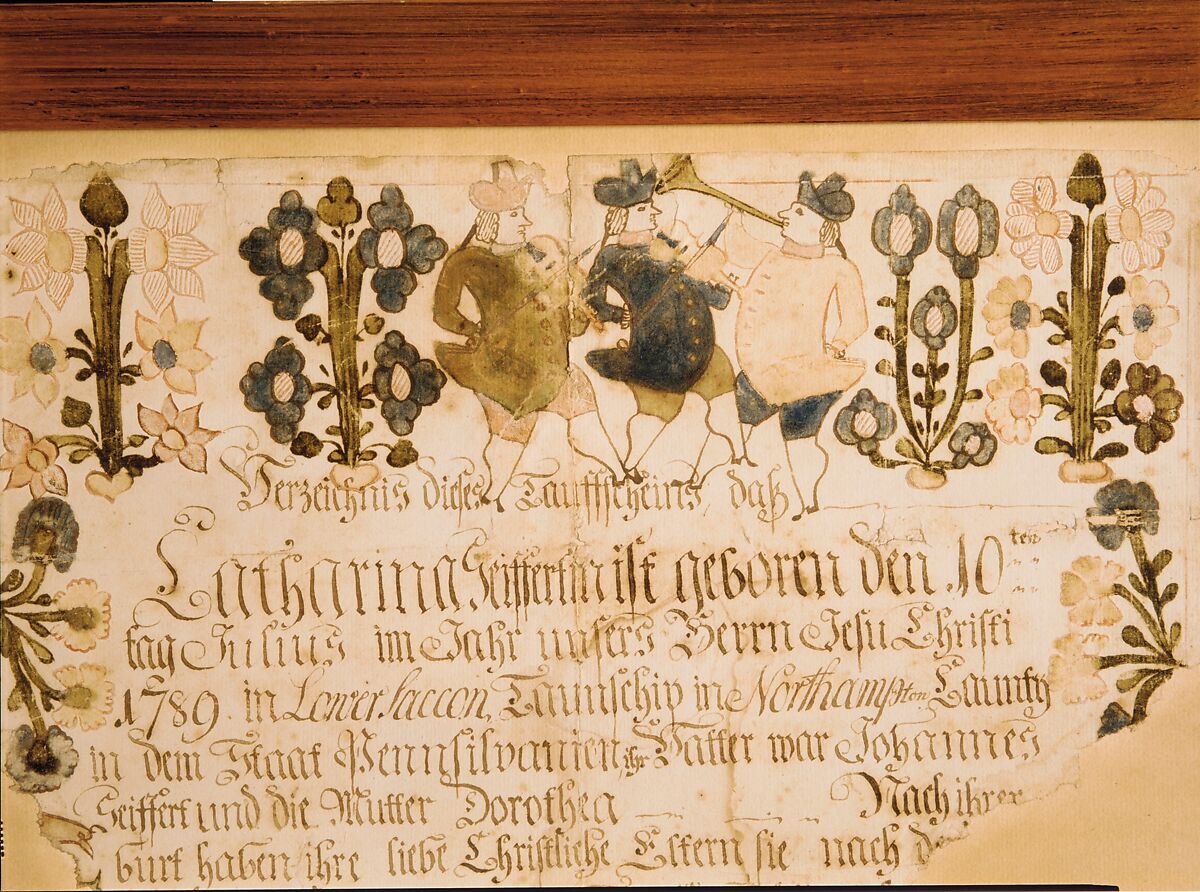 Verzeichnis dieses Taufffcheins, daß
Catharina Seiffertin ist geboren den 10ten
tag Julius im Jahr unsers Herrn Jesu Christi
1789 in Lower Saccon, Taunschip in Northampton Caunty
in dem Staat Pennsilvanien ihr Vatter war Johannes
Seiffert und die Mutter Dorothea Nach ihrer
burt haben ihre liebe Christliche Eltern sie nach